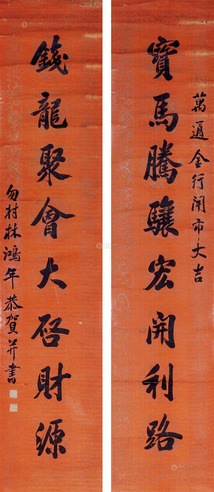 萬通金行開市大吉
寶馬騰驤宏開利路
錢龍聚會大啓財源
勿村林鴻年恭賀并書